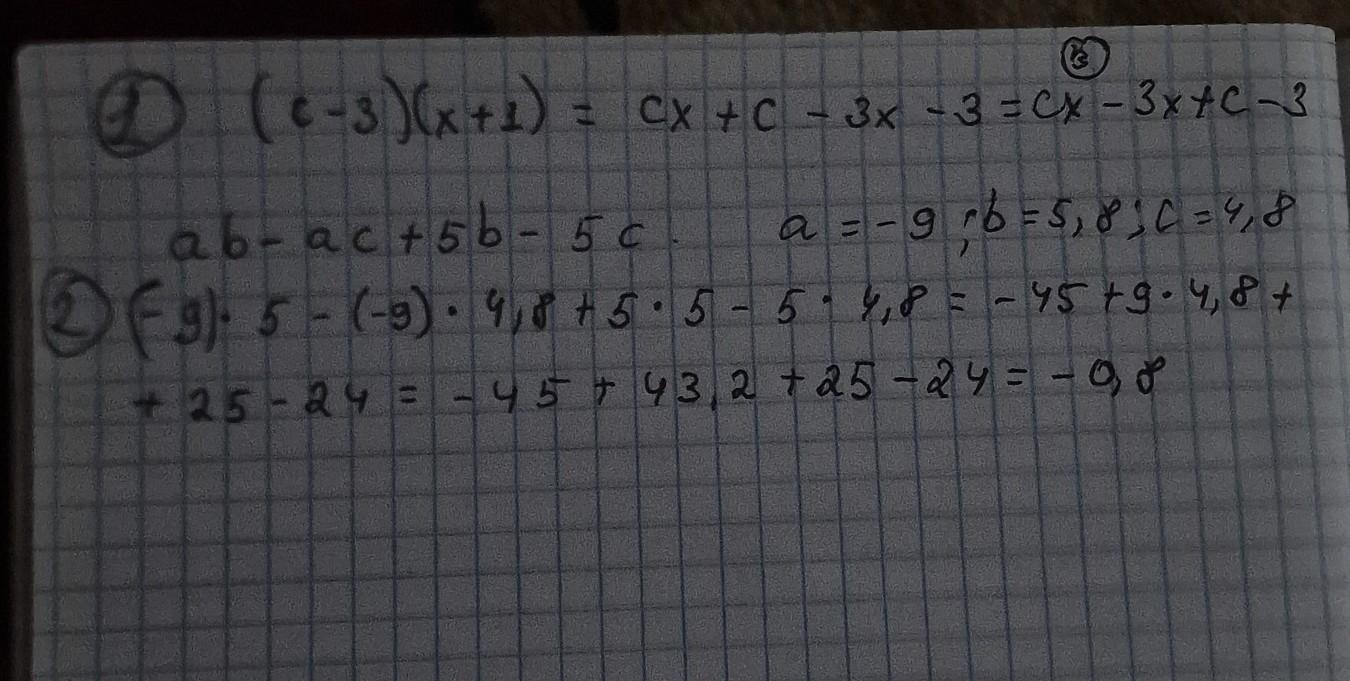 1 (c-3)(x+1) = cx + c - 3x - 3 = cx - 3x + c - 3
ab - ac + 5b - 5c. a = -9; b = 5,8; c = 4,8
2 (-9)· 5 - (-9) · 4,8 + 5 · 5 - 5 · 4,8 = - 45 + 9 · 4,8 +
+ 25 - 24 = - 45 + 43,2 + 25 - 24 = - 0,8